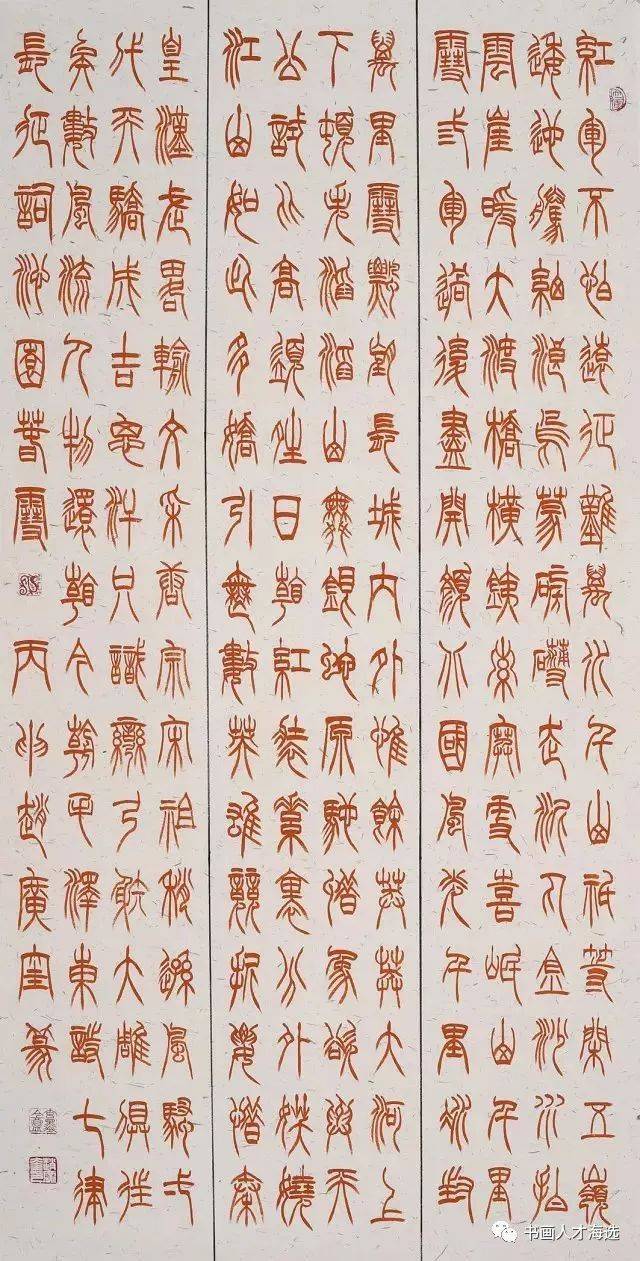 紅軍不怕遠征難萬水千山祇等閑五嶺
逶迤騰細浪烏蒙磅礴走泥丸金沙水拍
雲崖暖大渡橋橫鐵索寒更喜岷山千里
雪三軍過後盡開顏北國風光千里冰封
萬里雪飄望長城內外惟餘莽莽大河上
下頓失滔滔山舞銀蛇原馳蠟象欲與天
公試比高須晴日看紅裝素裹分外妖嬈
江山如此多嬌引無數英雄競折腰惜秦
皇漢武略輸文采唐宗宋祖稍遜風騷一
代天驕成吉思汗只識彎弓射大雕俱往
矣數風流人物還看今朝毛澤東詩七律
長征詞沁園春雪 丙申趙廣篆
书画人才海选